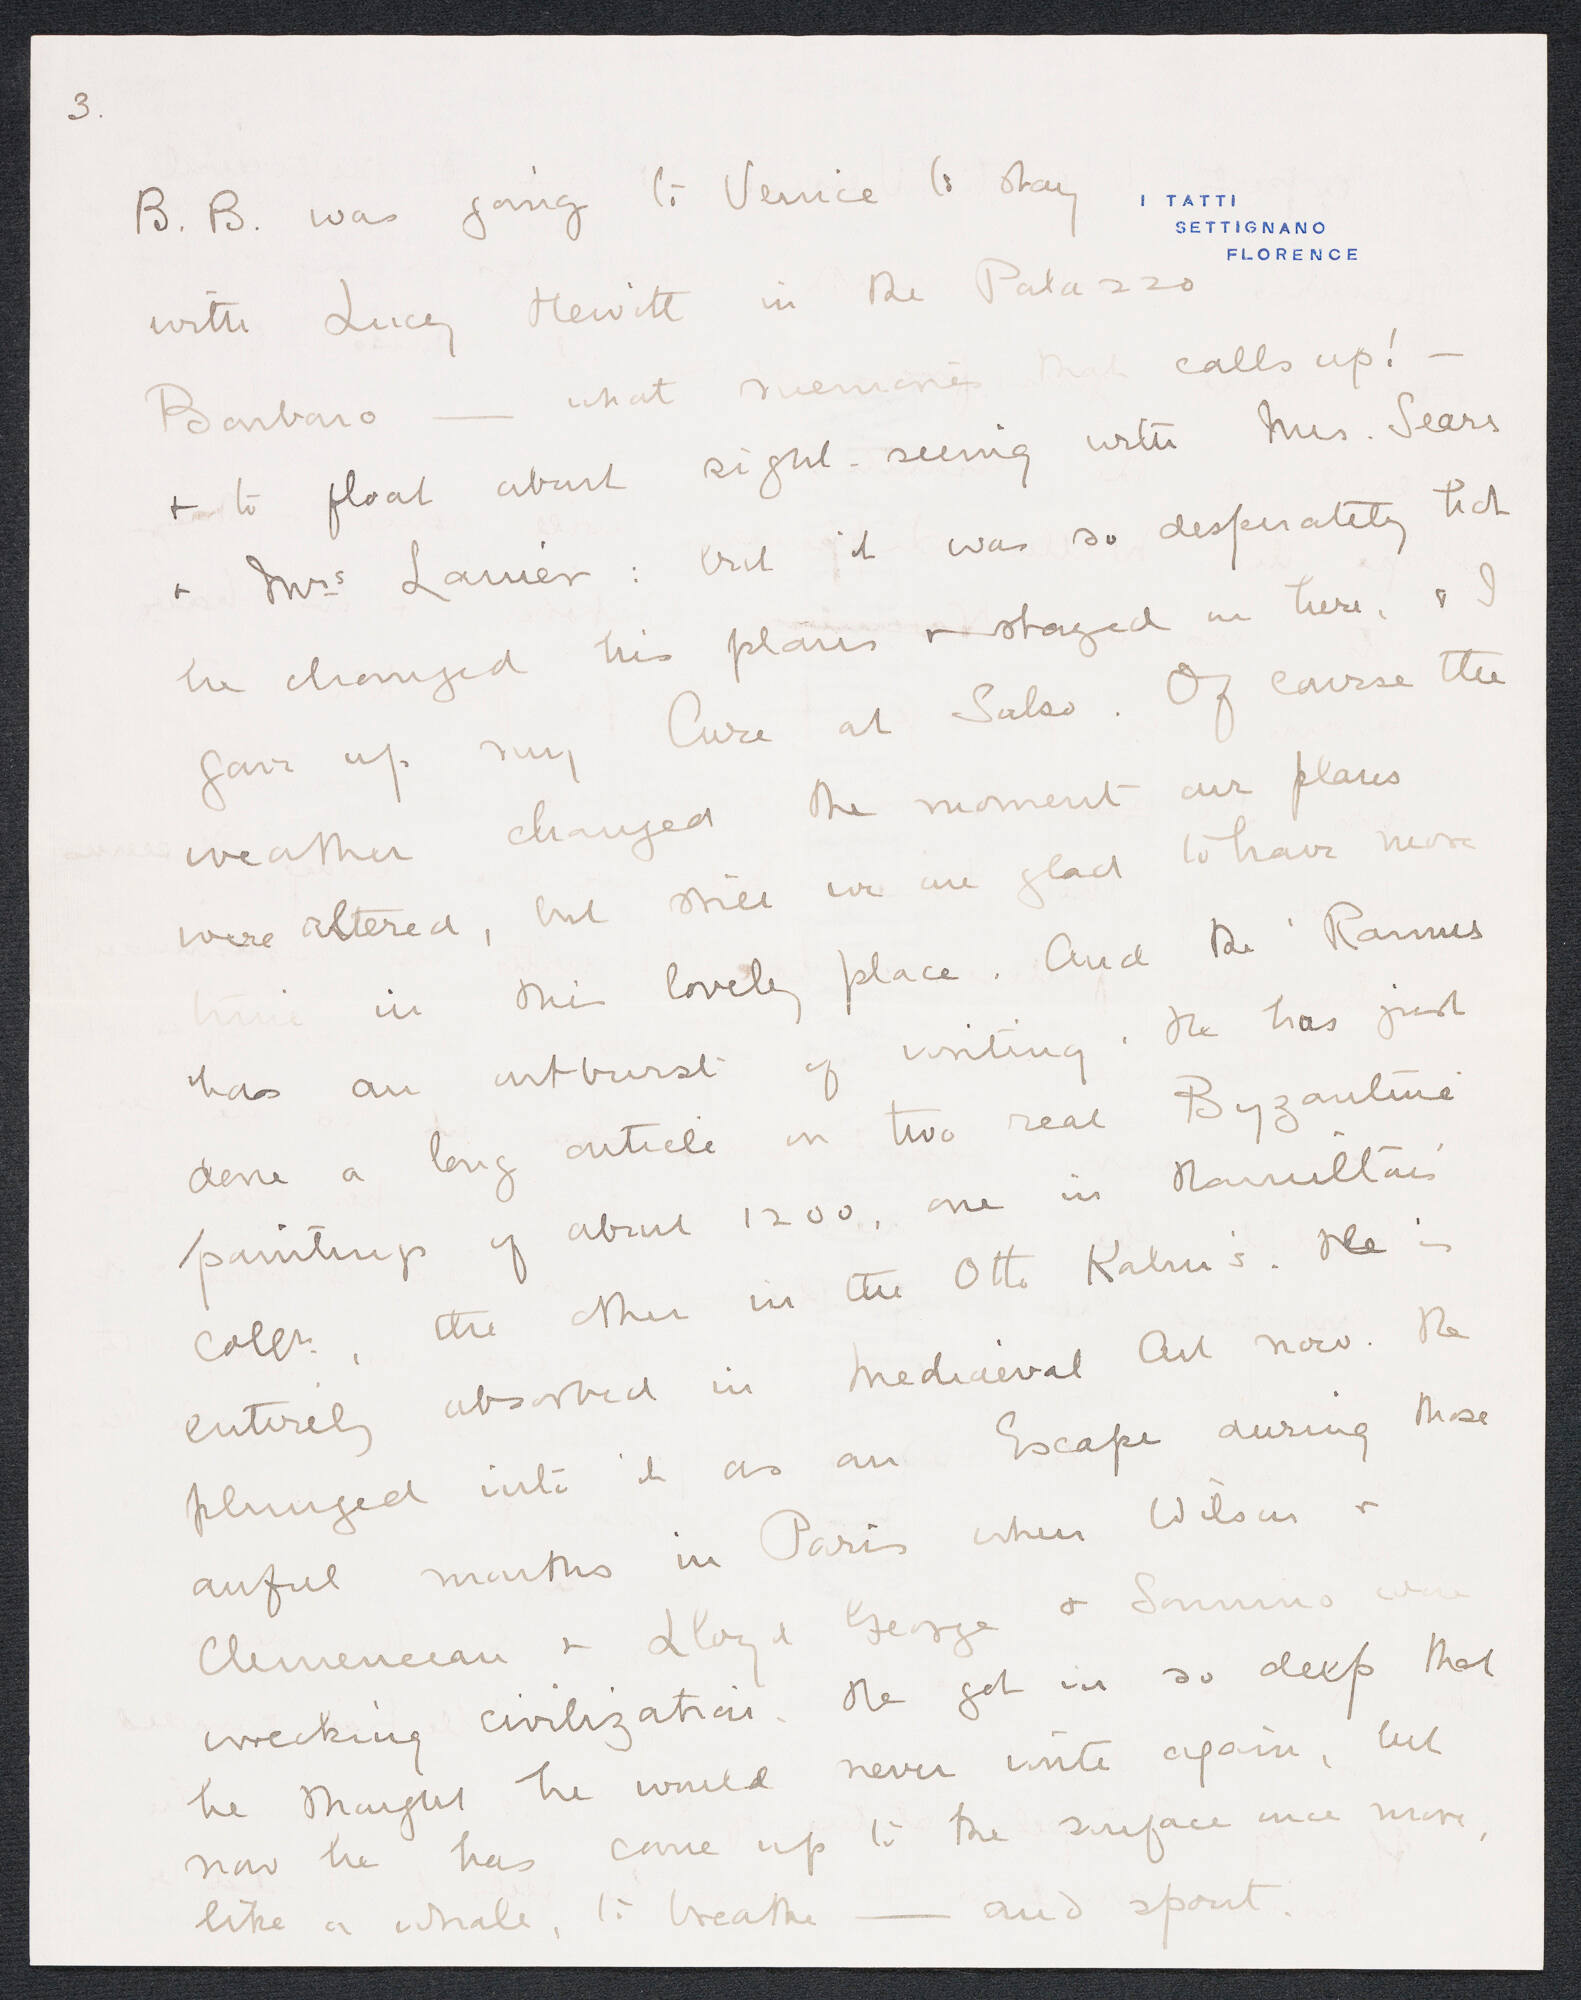 3.
B. B. was going to Venice to stay
I TATTI
SETTIGNANO
FLORENCE
with Lucy Hewitt in the Palazzo
Barbaro — what memories that calls up! —
+ to float about sight-seeing with Mrs. Sears
+ Mrs Lanier: but it was so desperately hot
he changed his plans + stayed on here, + I
gave up my Cure at Salso. Of course the
weather changed the moment our plans
were altered, but still we are glad to have more
time in this lovely place. And the
has an outburst of writing. He has just
done a long article on two real Byzantine
paintings of about 1200, one in Hamilton's
colln., the other in the Otto Kahn's. He is
entirely absorbed in Mediaeval Art now. He
plunged into it as an Escape during those
awful months in Paris when Wilson +
Clemenceau + Lloyd George + Sonnino were
wrecking civilization. He got in so deep that
he thought he would never write again, but
now he has come up to the surface once more,
like a whale, to breathe — and spout.